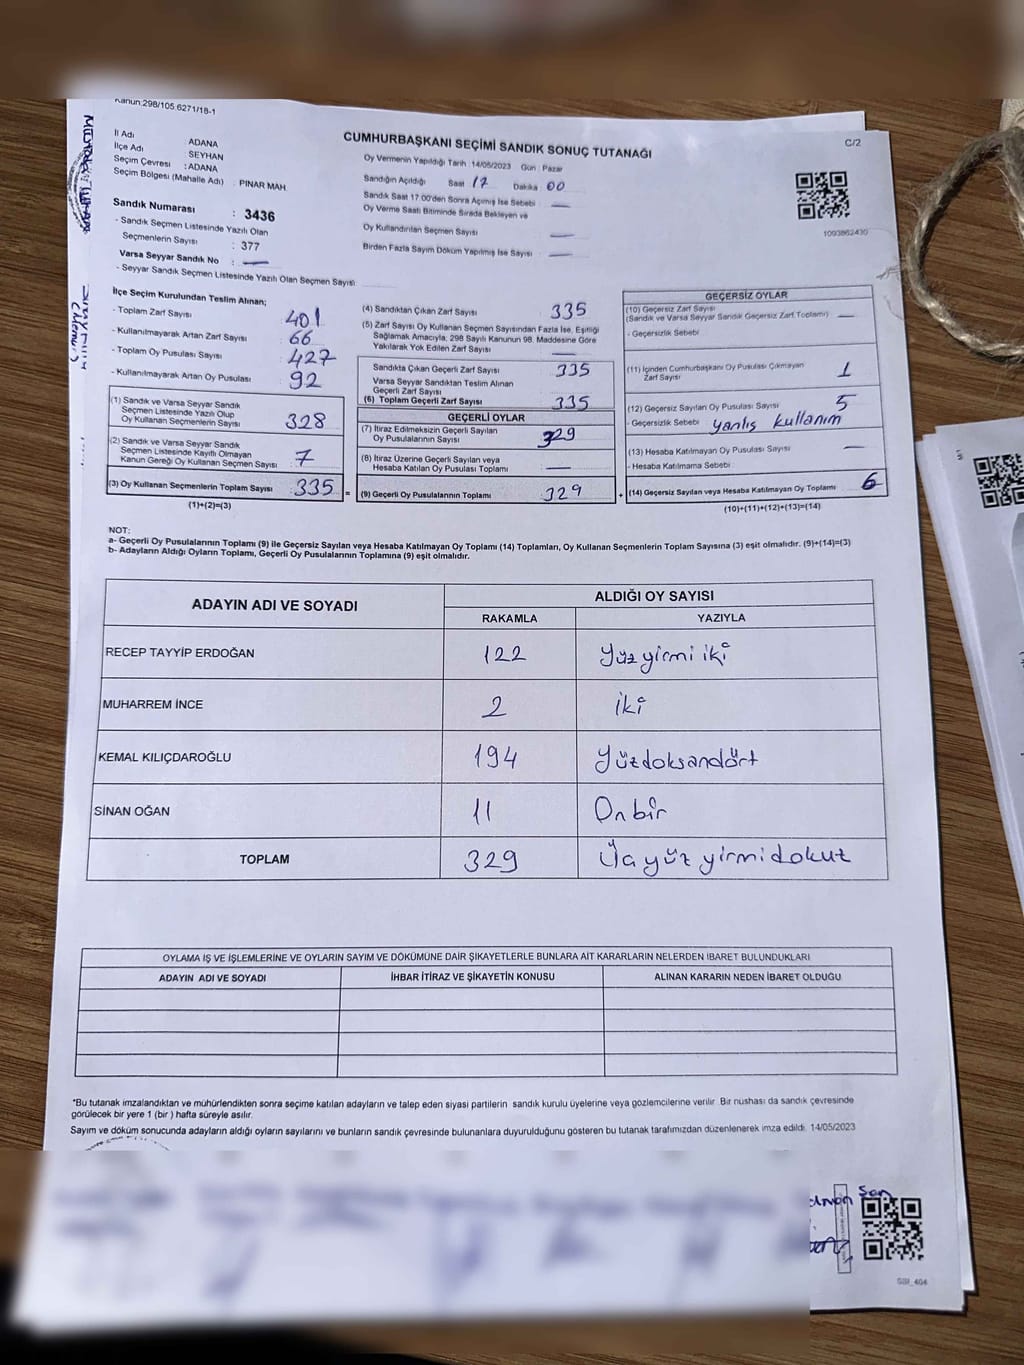 Kanun:298/105,6271/18-1
C/2
CUMHURBAŞKANI SEÇİMİ SANDIK SONUÇ TUTANAĞI
İl Adı : ADANA
İlçe Adı SEYHAN
Seçim Çevresi :ADANA
Seçim Bölgesi (Mahalle Adı) : PINAR MAH.
Sandık Numarası : 3436
- Sandık Seçmen Listesinde Yazılı Olan
Seçmenlerin Sayısı : 377
Varsa Seyyar Sandık No : —
- Seyyar Sandık Seçmen Listesinde Yazılı Olan Seçmen Sayısı:
Oy Vermenin Yapıldığı Tarih :14/05/2023 Gün : Pazar
Sandığın Açıldığı Saat 17 Dakika 00
Sandık Saat 17.00'den Sonra Açımış İse Sebebi —
Oy Verme Saati Bitiminde Sırada Bekleyen ve
Oy Kullandırılan Seçmen Sayısı —
Birden Fazla Sayım Döküm Yapılmış İse Sayısı —
1093862430
İlçe Seçim Kurulundan Teslim Alınan;
- Toplam Zarf Sayısı 401
- Kullanılmayarak Artan Zarf Sayısı 66
- Toplam Oy Pusulası Sayısı 427
- Kullanılmayarak Artan Oy Pusulası 92
(1) Sandık ve Varsa Seyyar Sandık
Seçmen Listesinde Yazılı Olup
Oy Kullanan Seçmenlerin Sayısı 328
(2) Sandık ve Varsa Seyyar Sandık
Seçmen Listesinde Kayıtlı Olmayan
Kanun Gereği Oy Kullanan Seçmen Sayısı 7
(3) Oy Kullanan Seçmenlerin Toplam Sayısı :335 =
(1)+(2)=(3)
(4) Sandıktan Çıkan Zarf Sayısı 335
(5) Zarf Sayısı Oy Kullanan Seçmen Sayısından Fazla İse, Eşitliği
Sağlamak Amacıyla; 298 Sayılı Kanunun 98. Maddesine Göre
Yakılarak Yok Edilen Zarf Sayısı —
Sandıkta Çıkan Geçerli Zarf Sayısı 335
Varsa Seyyar Sandıktan Teslim Alınan
Geçerli Zarf Sayısı
(6) Toplam Geçerli Zarf Sayısı 335
GEÇERLİ OYLAR
(7) İtiraz Edilmeksizin Geçerli Sayılan
Oy Pusulalarının Sayısı 329
(8) İtiraz Üzerine Geçerli Sayılan veya
Hesaba Katılan Oy Pusulası Toplamı —
(9) Geçerli Oy Pusulalarının Toplamı 329 +
GEÇERSİZ OYLAR
(10) Geçersiz Zarf Sayısı
(Sandık ve Varsa Seyyar Sandık Geçersiz Zarf Toplamı) —
- Geçersizlik Sebebi
(11) İçinden Cumhurbaşkanı Oy Pusulası Çıkmayan
Zarf Sayısı 1
(12) Geçersiz Sayılan Oy Pusulası Sayısı 5
- Geçersizlik Sebebi yanlış kullanım
(13) Hesaba Katılmayan Oy Pusulası Sayısı —
- Hesaba Katılmama Sebebi
(14) Geçersiz Sayılan veya Hesaba Katılmayan Oy Toplamı 6
(10)+(11)+(12)+(13)=(14)
NOT:
a- Geçerli Oy Pusulalarının Toplamı (9) ile Geçersiz Sayılan veya Hesaba Katılmayan Oy Toplamı (14) Toplamları, Oy Kullanan Seçmenlerin Toplam Sayısına (3) eşit olmalıdır. (9)+(14)=(3)
b- Adayların Aldığı Oyların Toplamı, Geçerli Oy Pusulalarının Toplamına (9) eşit olmalıdır.
ADAYIN ADI VE SOYADI ALDIĞI OY SAYISI
RAKAMLA YAZIYLA
RECEP TAYYİP ERDOĞAN 122 Yüzyirmi iki
MUHARREM İNCE 2 iki
KEMAL KILIÇDAROĞLU 194 Yüzdoksandört
SİNAN OĞAN 11 On bir
TOPLAM 329 Üçyüz yirmidokuz
OYLAMA İŞ VE İŞLEMLERİNE VE OYLARIN SAYIM VE DÖKÜMÜNE DAİR ŞİKAYETLERLE BUNLARA AİT KARARLARIN NELERDEN İBARET BULUNDUKLARI
ADAYIN ADI VE SOYADI İHBAR İTİRAZ VE ŞİKAYETİN KONUSU ALINAN KARARIN NEDEN İBARET OLDUĞU
*Bu tutanak imzalandıktan ve mühürlendikten sonra seçime katılan adayların ve talep eden siyasi partilerin sandık kurulu üyelerine veya gözlemcilerine verilir. Bir nushası da sandık çevresinde
görülecek bir yere 1 (bir ) hafta süreyle asılır.
Sayım ve döküm sonucunda adayların aldığı oyların sayılarını ve bunların sandık çevresinde bulunanlara duyurulduğunu gösteren bu tutanak tarafımızdan düzenlenerek imza edildi. 14/05/2023